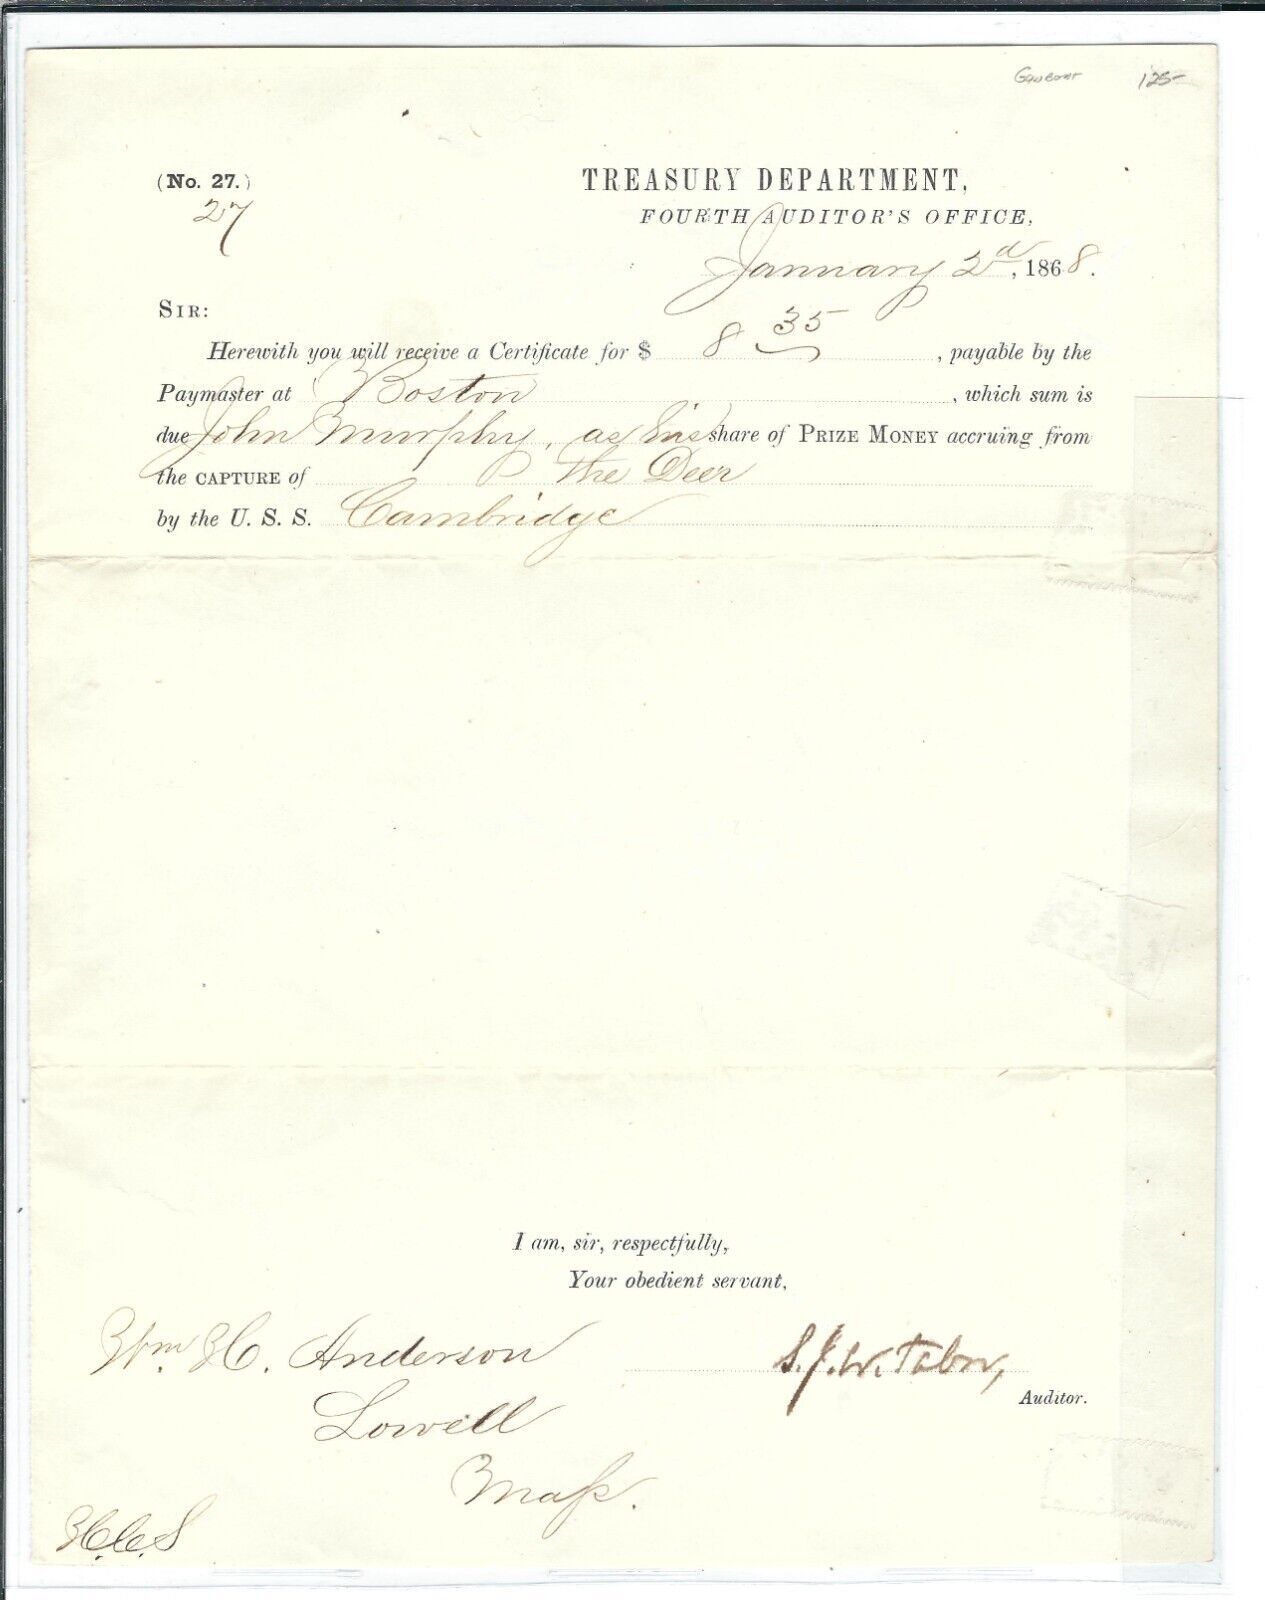 125-
(No. 27.)
27
TREASURY DEPARTMENT,
FOURTH AUDITOR'S OFFICE,
January 2d, 1868.
SIR:
Herewith you will receive a Certificate for $ 8 35, payable by the
Paymaster at Boston, which sum is
due John Murphy, as his share of PRIZE MONEY accruing from
the CAPTURE of the Deer
by the U. S. S. Cambridge
I am, sir, respectfully,
Your obedient servant,
Wm. H. Anderson
S. J. W. Tabor,
Auditor.
Lowell
Mass.
H.C.S